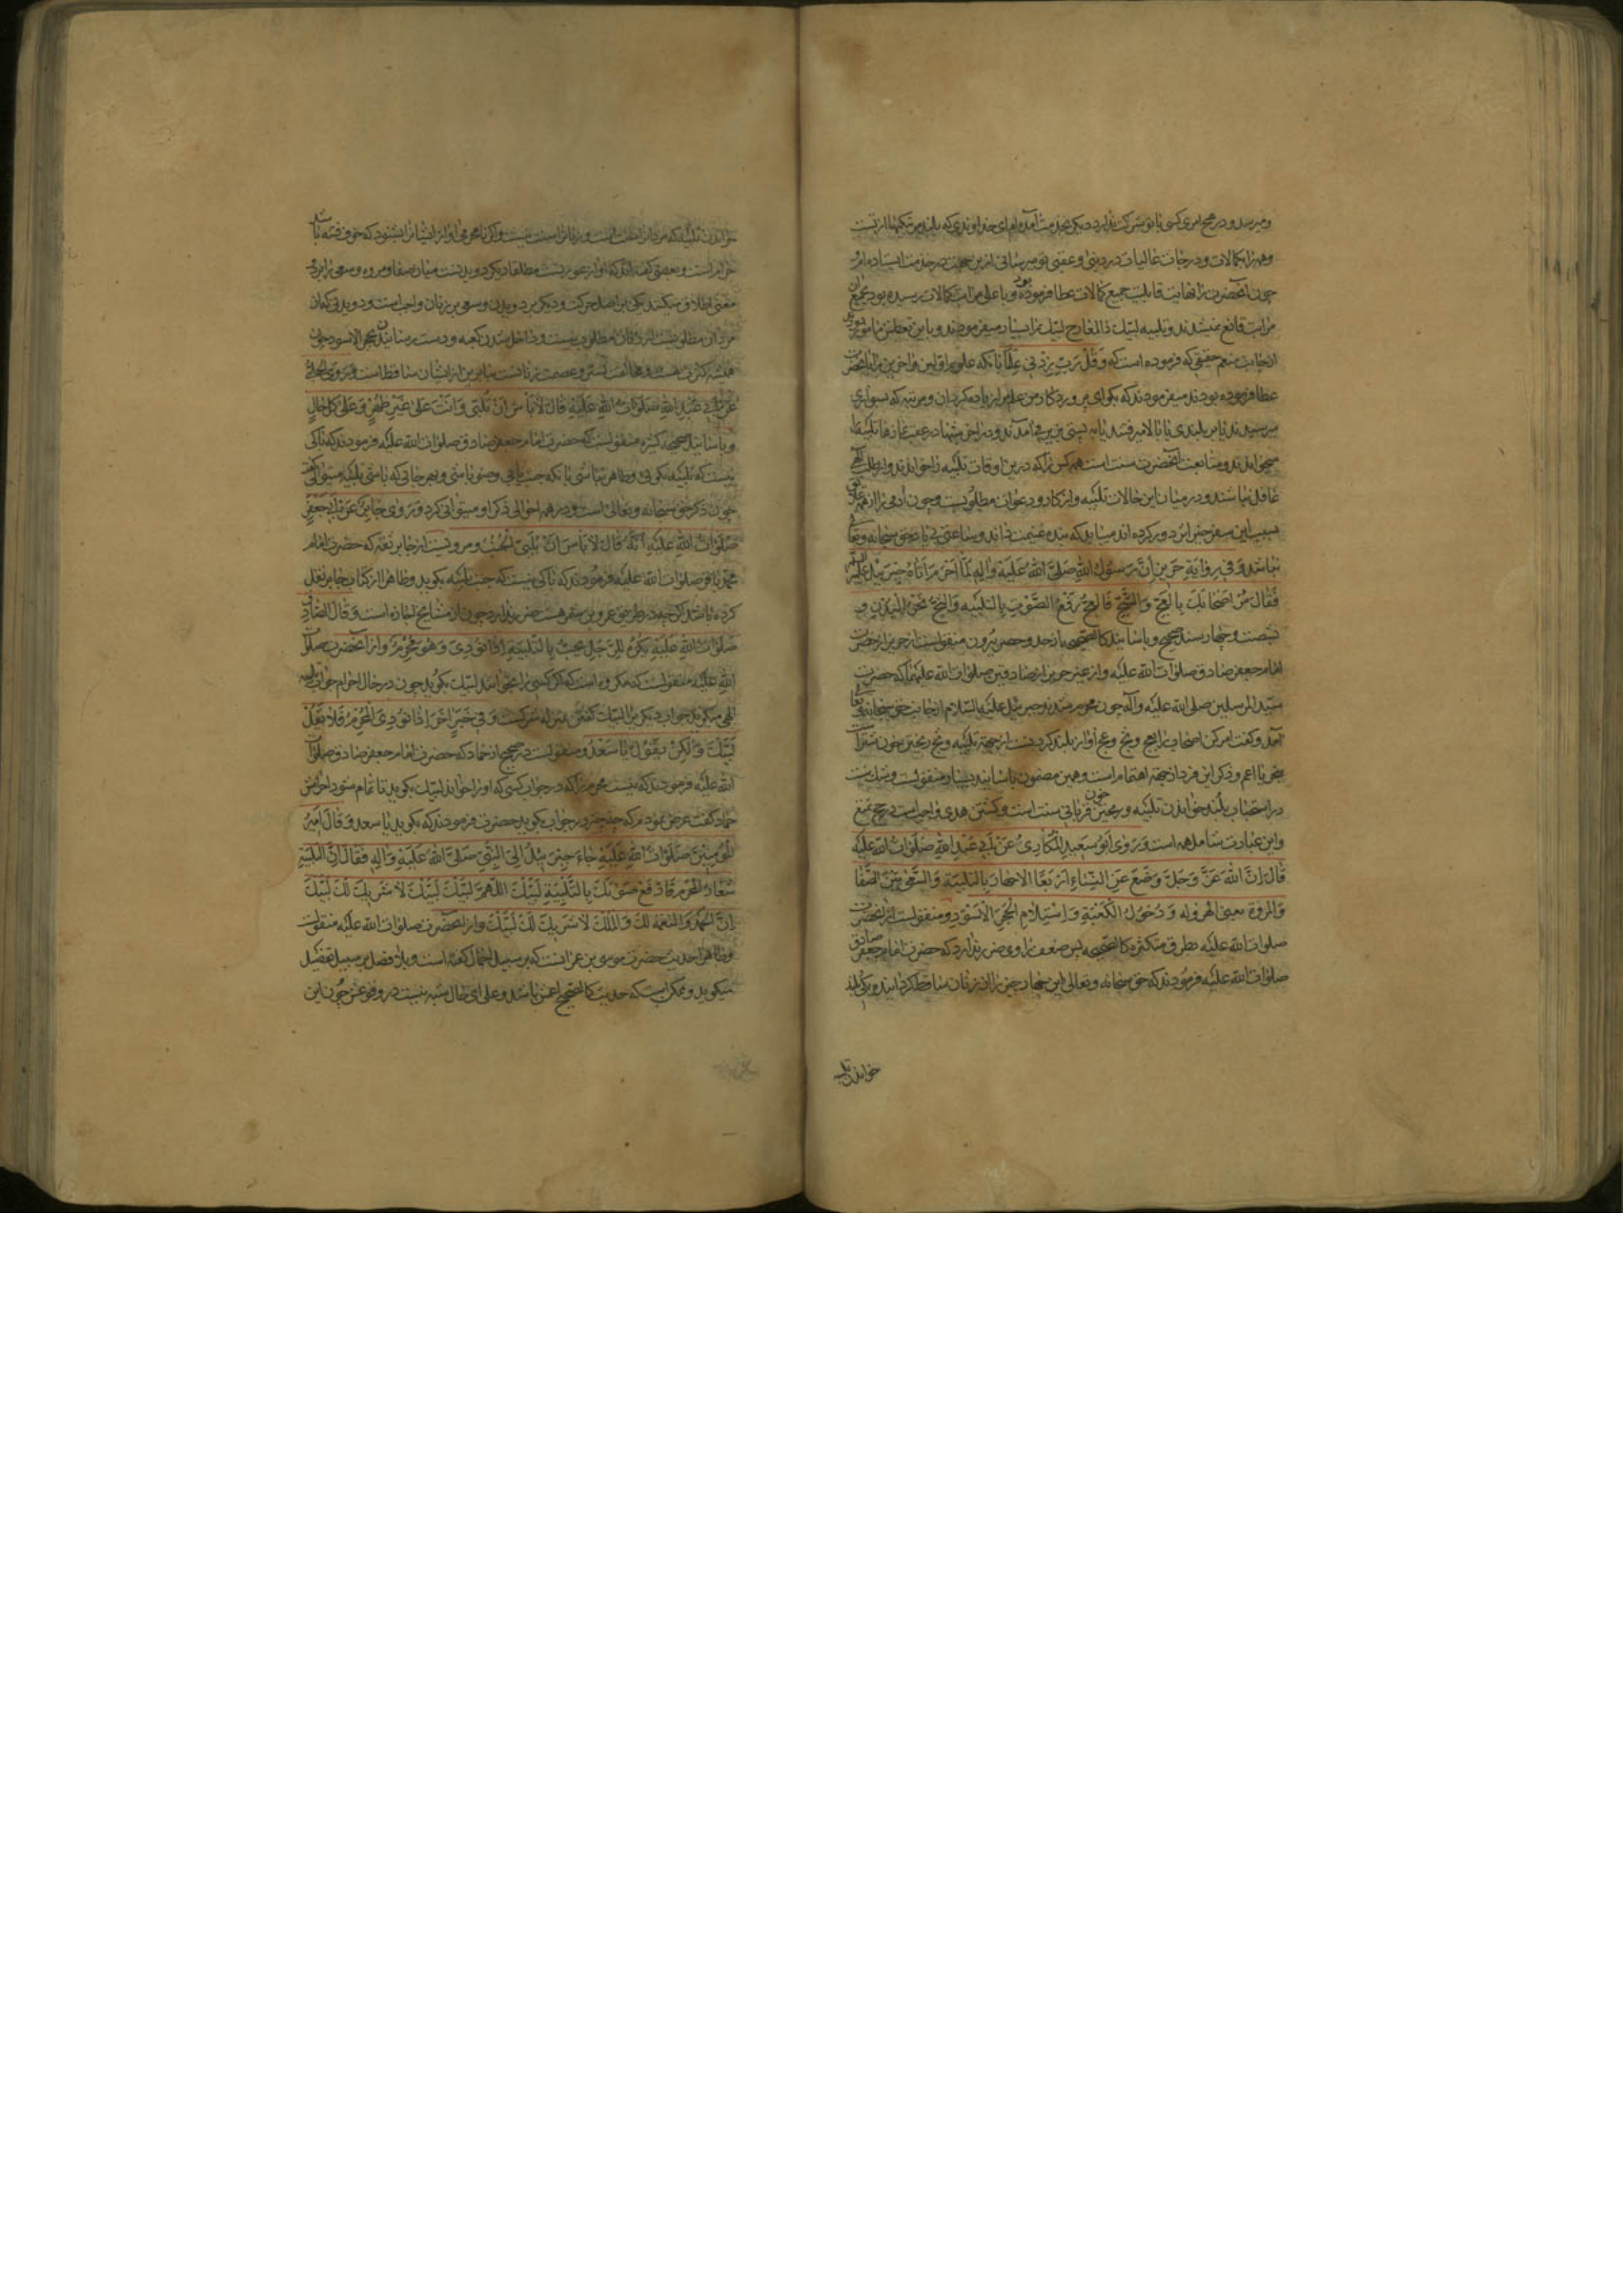 و میرسد و در هیچ امری کسی با تو شرکت ندارد دیگر بخدمت آمده‌ام ای خداوندی که بلند مرتبگیها از تست
و همه را بکمالات و درجات عالیات در دنیی و عقبی تو میرسانی ازین جهت در خدمت ایستاده‌ام
چون آنحضرت را نهایت قابلیت جمیع کمالات عطا فرموده بود و با علی مراتب کمالات رسیده بود بجمیع آن
مراتب قانع نمیشدند و تلبیه لبیک ذا المعارج لبیک را بسیار میفرمودند و باین تعطش مامور بودند
از جانب منعم حقیقی که فرموده است که وَقُلْ رَبِّ زِدْنی عِلْماً با آنکه علوم اولین و آخرین را بآنحضرت
عطا فرموده بودند میفرمودند که بگو ای پروردگار من علم مرا زیاده گردان و مرتبه که بسواری
میرسیدند یا بر بلندی یا بالا میرفتند یا به پستی بزیر می‌آمدند و در آخر شبها و در عقب نمازها تلبیه‌ها
میخواندند و متابعت آنحضرت سنت است همه کس را که درین اوقات تلبیه را خوانند و از مطلب
غافل نباشند و در میان این حالات تلبیه و اذکار و دعوات مطلوبست و چون آدمی را از همه
بسبب این سفر جبرا بر دور کرده‌اند میباید که بنده غنیمت داند و ساعتی بی یاد حق سبحانه و تعالی
نباشد وَفی رِوٰایَةِ حَریزٍ اَنَّ رَسُولَ اللّٰهِ صَلَّی اللّٰهُ عَلَیْهِ وَاٰلِهِ لَمّٰا اَحْرَمَ اَتٰاهُ جَبْرَئیلُ عَلَیْهِ السَّلٰامُ
فَقٰالَ مُرْ اَصْحٰابَکَ بِالْعَجِّ وَالثَّجِّ فَالْعَجُّ رَفْعُ الصَّوْتِ بِالتَّلْبِیَةِ وَالثَّجُّ نَحْرُ الْبُدْنِ و
بشصت و چهار سند صحیح و باسانید کالصحیحه از حد و حصر بیرون منقولست از حریز از حضرت
امام جعفر صادق صلوات الله علیه و از غیر حریز از صادقین صلوات الله علیهما که حضرت
سید المرسلین صلی الله علیه و آله چون محرم شدند جبرئیل علیه السلام از جانب حق سبحانه و تعالی
آمد و گفت امر کن اصحاب را بعج و ثج و عج آواز بلند کردنست از جهة تلبیه و ثج ریختن خون شتر است
بنحر یا اعم و ذکر این فرد از جهة اهتمام است و همین مضمون باسانید بسیار منقولست و شک نیست
در استحباب بلند خواندن تلبیه و ریختن خون قربانی سنت است و کشتن هدی واجب است در حج تمتع
و این عبارت شامل همه است وَرَوٰی اَبُو سَعیدٍ الْمُکٰاری عَنْ اَبی عَبْدِ اللّٰهِ صَلَوٰاتُ اللّٰهِ عَلَیْهِ
قٰالَ اِنَّ اللّٰهَ عَزَّ وَجَلَّ وَضَعَ عَنِ النِّسٰاءِ اَرْبَعًا الْاِجْهٰارَ بِالتَّلْبِیَةِ وَالسَّعْیَ بَیْنَ الصَّفٰا
وَالْمَرْوَةِ یعنی الهروله وَدُخُولَ الْکَعْبَةِ وَاسْتِلٰامَ الْحَجَرِ الْاَسْوَدِ و منقولست از آنحضرت
صلوات الله علیه بطرق متکثره کالصحیحه پس ضعف راوی ضرر ندارد که حضرت امام جعفر صادق
صلوات الله علیه فرمودند که حق سبحانه و تعالی این چهار چیز را از زنان ساقط گردانیده یکی بلند
خواندن تلبیه
خواندن تلبیه که مردانرا سنت است و زنانرا سنت نیست و اگر نامحرمی آواز ایشانرا بشنود که خوف فتنه باشد
حرام است و بعضی گفته‌اند که آواز عورتست مطلقا و یکی دویدنست میان صفا و مروه و سعی را بر دو
معنی اطلاق میکنند یکی بر اصل حرکت و دیگر بر دویدن و سعی بر زنان واجب است و دویدنی که از
مردان مطلوبست از زنان مطلوب نیست و داخل شدن کعبه و دست رسانیدن بحجر الاسود چون
همیشه کثرت هست و مخالف تستر و عصمت زنانست بنابرین از ایشان ساقط است وَرَوَی الْحَلَبِیُّ
عَنْ اَبی عَبْدِ اللّٰهِ صَلَوٰاتُ اللّٰهِ عَلَیْهِ قٰالَ لٰا بَأْسَ اَنْ تُلَبِّیَ وَاَنْتَ عَلیٰ غَیْرِ طُهْرٍ وَعَلیٰ کُلِّ حٰالٍ
و باسانید صحیحه کثیره منقولست که حضرت امام جعفر صادق صلوات الله علیه فرمودند که باکی
نیست که تلبیه بگویی و طاهر نباشی با آنکه جنب باشی یا بی وضو باشی و بهر حالی که باشی تلبیه میتوانی گفت
چون ذکر حق سبحانه و تعالی است و در همه احوالی ذکر او میتوانی کرد وَرَوٰی جٰابِرٌ عَنْ اَبی جَعْفَرٍ
صَلَوٰاتُ اللّٰهِ عَلَیْهِ اَنَّهُ قٰالَ لٰا بَأْسَ اَنْ یُلَبِّیَ الْجُنُبُ و مرویست از جابر ثقه که حضرت امام
محمد باقر صلوات الله علیه فرمودند که باکی نیست که جنب تلبیه بگوید و ظاهرا از کتاب جابر نقل
کرده باشد اگر چه در طریق عمرو بن شمر هست ضرر ندارد چون از مشایخ اجازه است وَقٰالَ الصّٰادِقُ
صَلَوٰاتُ اللّٰهِ عَلَیْهِ یُکْرَهُ لِلرَّجُلِ یُجیبُ بِالتَّلْبِیَةِ اِذٰا نُودِیَ وَهُوَ مُحْرِمٌ و از آنحضرت صلوات
الله علیه منقولست که مکروه است که اگر کسی را بخوانند لبیک بگوید چون در حال احرام جواب
الهی میگوید جواب دیگری را لبیک گفتن بمنزله شرکست وَفی خَبَرٍ اٰخَرَ اِذٰا نُودِیَ الْمُحْرِمُ فَلٰا یَقُلْ
لَبَّیْکَ وَلٰکِنْ یَقُولُ یٰا سَعْدُ و منقولست در صحیح از حماد که حضرت امام جعفر صادق صلوات
الله علیه فرمودند که نیست محرم را که در جواب کسی که او را خواند لبیک بگوید تا تمام شود احرامش
حماد گفت عرض نمودم که چه چیز در جواب بگوید حضرت فرمودند که بگوید یا سعد وَقٰالَ اَمیرُ
الْمُؤْمِنینَ صَلَوٰاتُ اللّٰهِ عَلَیْهِ جٰاءَ جَبْرَئیلُ اِلَی النَّبِیِّ صَلَّی اللّٰهُ عَلَیْهِ وَاٰلِهِ فَقٰالَ اِنَّ التَّلْبِیَةَ
شِعٰارُ الْمُحْرِمِ فَارْفَعْ صَوْتَکَ بِالتَّلْبِیَةِ لَبَّیْکَ اللّٰهُمَّ لَبَّیْکَ لَبَّیْکَ لٰا شَریکَ لَکَ لَبَّیْکَ
اِنَّ الْحَمْدَ وَالنِّعْمَةَ لَکَ وَالْمُلْکَ لٰا شَریکَ لَکَ لَبَّیْکَ و از آنحضرت صلوات الله علیه منقولست
و ظاهرا حدیث حضرت موسی بن عمرانست که بر سبیل اجمال گفته است و بلا فصل بر سبیل تفصیل
میگوید و ممکن است که حدیث کالصحیح اعمش باشد و علی ای حال شبه نیست در وقوعش چون این